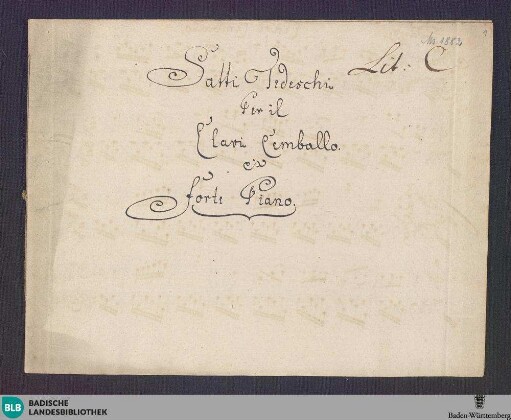 Ms 1883
1
Lit: C
Salti Tedeschi
Per il
Clavi Cembalo.
e
forte Piano.
BLB BADISCHE
LANDESBIBLIOTHEK
Baden-Württemberg